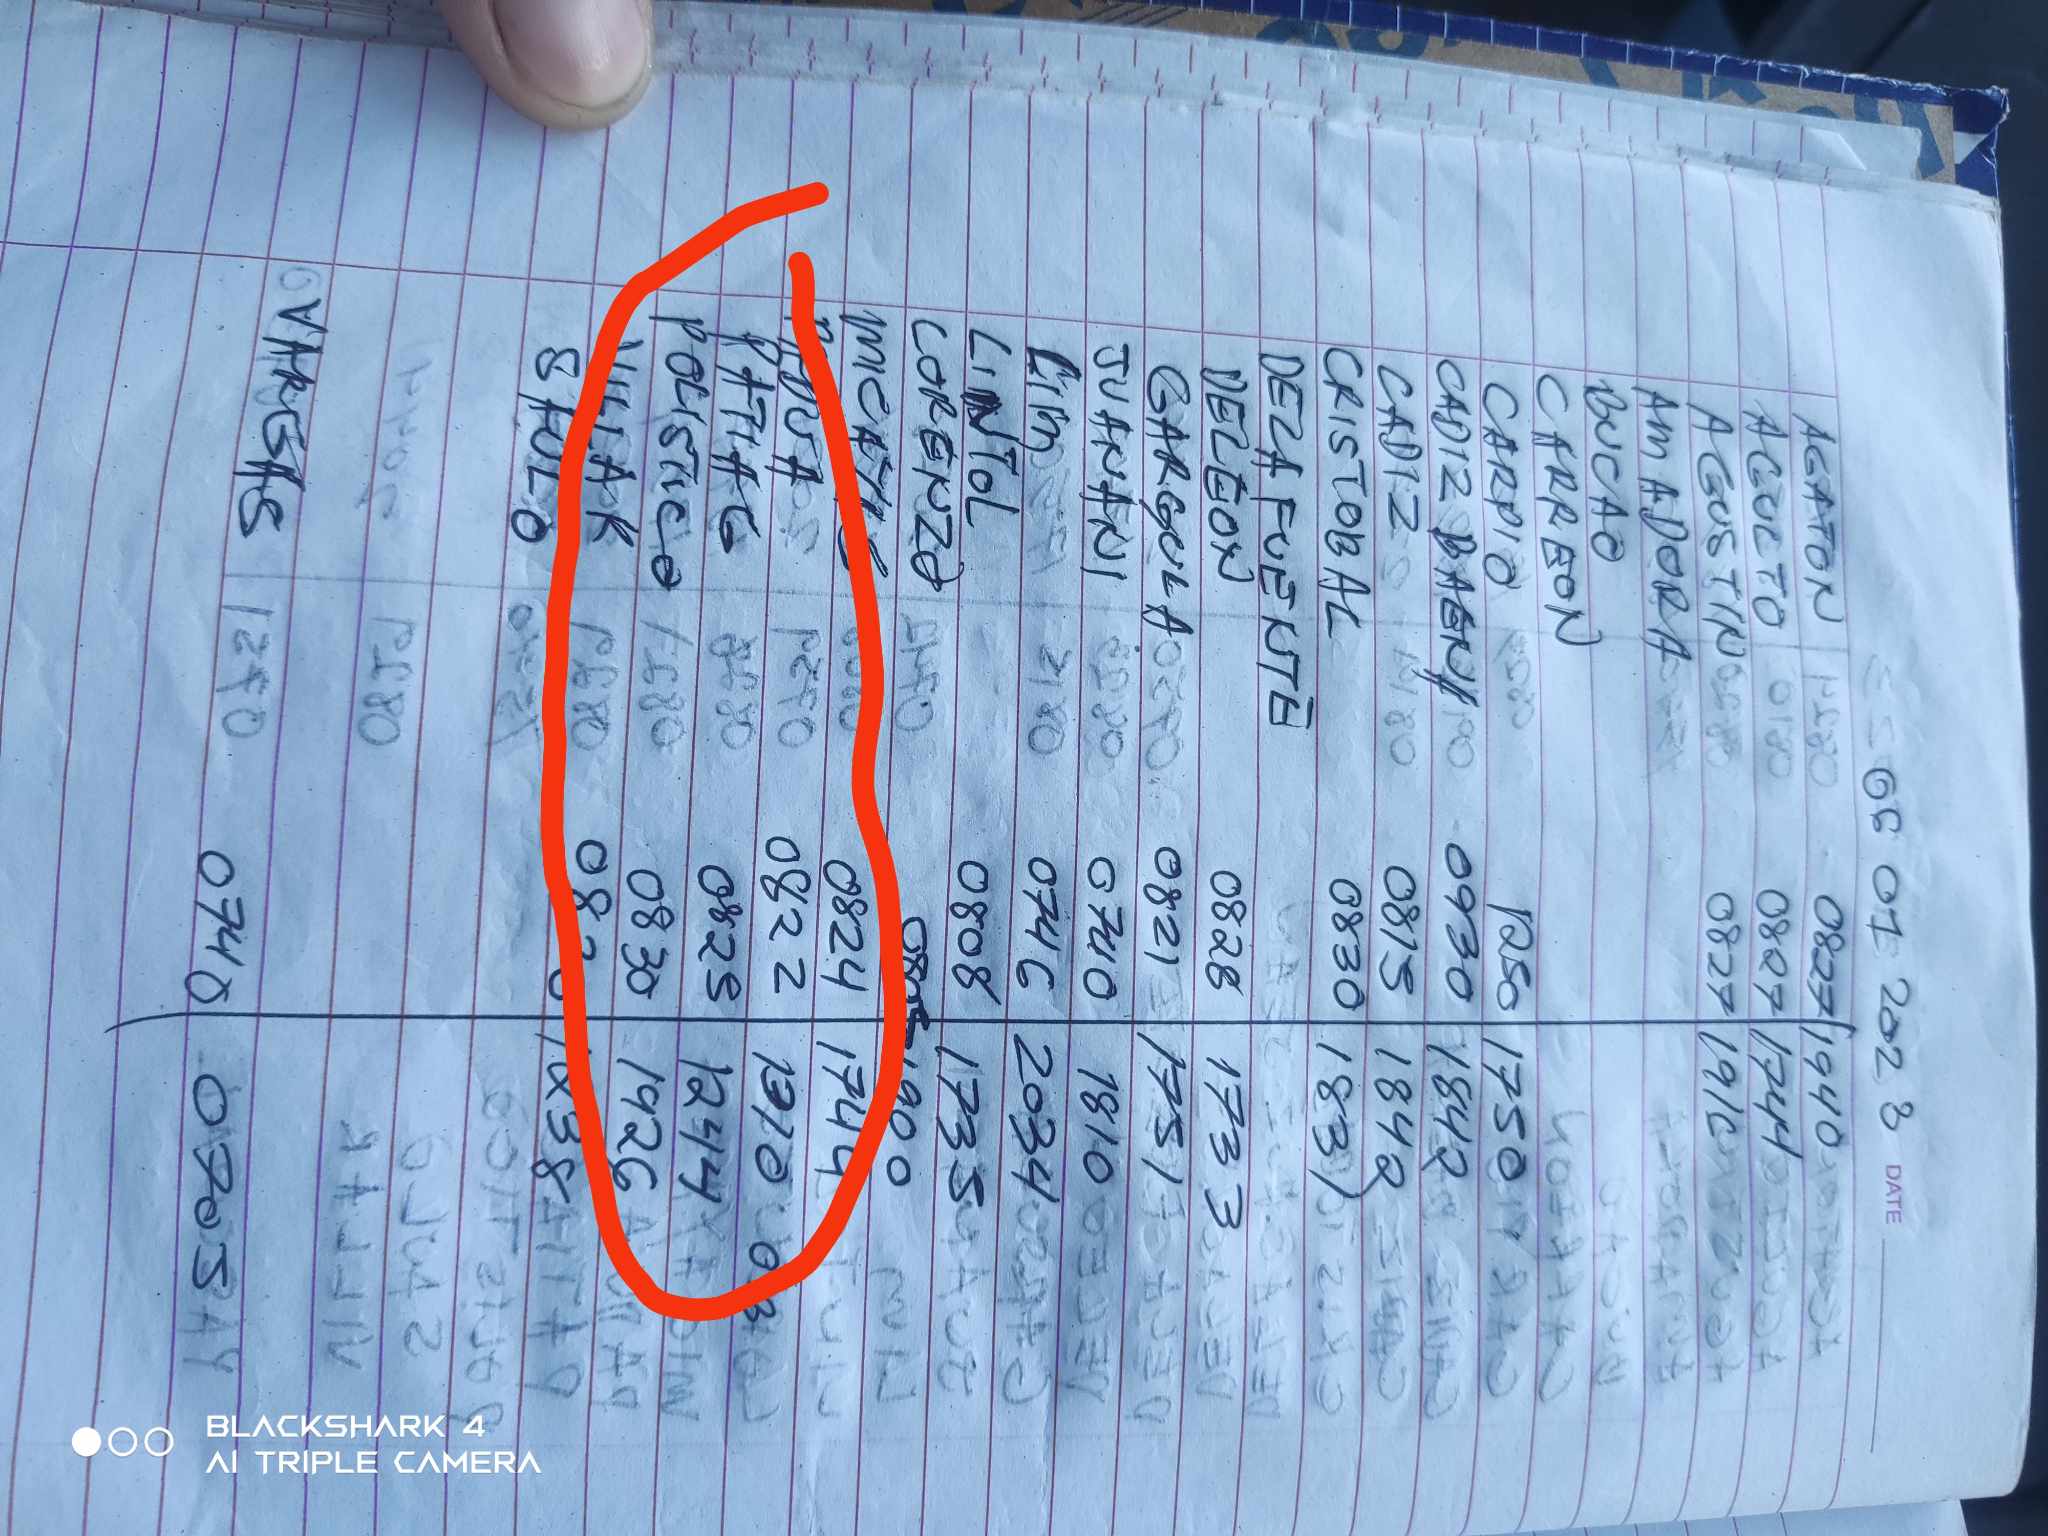 06 01 2023 DATE
AGATON 0827 1940
AGULTO 0827 1744
AGUSTIN 0827 191C
AMADORA
BUCAO
CARREON
CARPIO 1250 1750
CADIZ BAENA 0930 1842
CADIZ 0815 1842
CRISTOBAL 0830 1831
DELAFUENTE
DELEON 0828 1733
GARGULA 0821 1751
JUANANI 0740 1810
LIM 0746 2034
LINTOL 0808 1735
LORENZO 1900
0824 1744
PADUA 0822
PATIAG 0825 1244
POLISTICO 0830 1926
VILLAR 1238
SAULO
VARGAS 0740 0705
BLACKSHARK 4
AI TRIPLE CAMERA